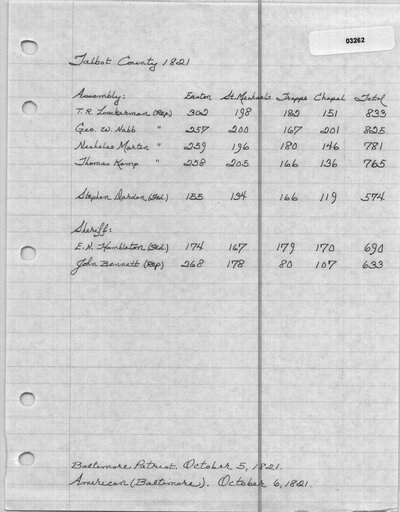 03262
Talbot County 1821
Assembly: Easton St. Michaels Trappe Chapel Total
T.R. Loockerman (Rep) 302 198 182 151 833
Geo. W. Nabb " 257 200 167 201 825
Nicholas Martin " 259 196 180 146 781
Thomas Kemp " 258 205 166 136 765
Stephen Darden (Fed.) 155 134 166 119 574
Sheriff:
E.N. Hambleton (Fed.) 174 167 179 170 690
John Bennett (Rep) 268 178 80 107 633
Baltimore Patriot. October 5, 1821.
American (Baltimore). October 6, 1821.